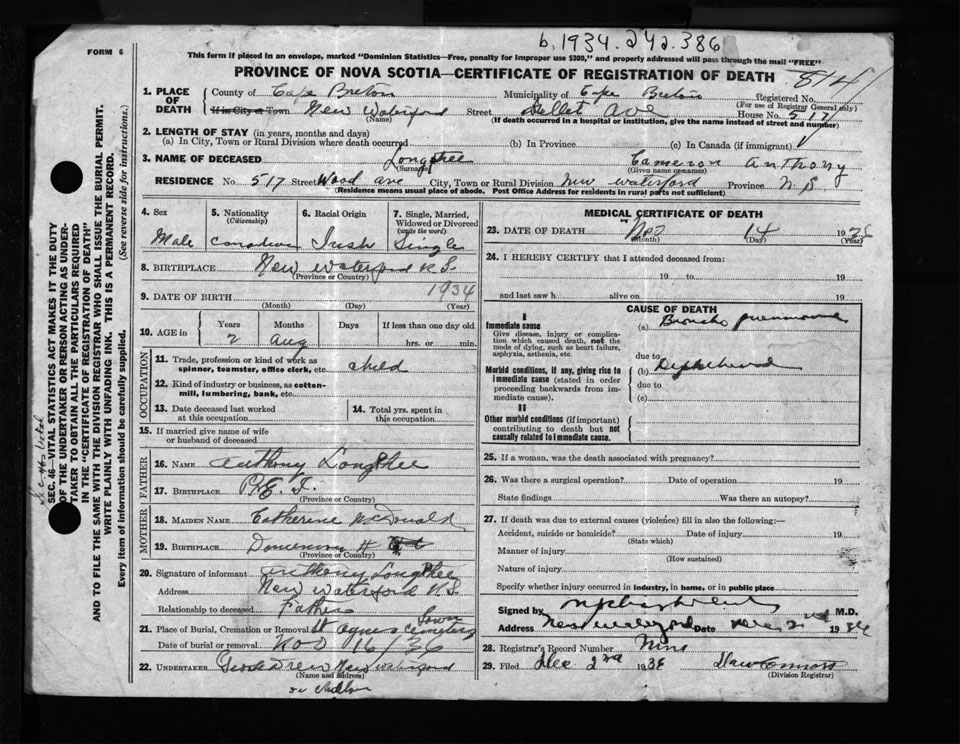 b.1934.242.386
FORM 6
This form if placed in an envelope, marked "Dominion Statistics—Free, penalty for improper use $300," and properly addressed will pass through the mail "FREE"
PROVINCE OF NOVA SCOTIA—CERTIFICATE OF REGISTRATION OF DEATH
814
1. PLACE OF DEATH
County of Cape Breton Municipality of Cape Breton Registered No.
(For use of Registrar General only)
If in City or Town New Waterford Street Ave House No. 517
(Name) (If death occurred in a hospital or institution, give the name instead of street and number)
2. LENGTH OF STAY (in years, months and days)
(a) In City, Town or Rural Division where death occurred (b) In Province (c) In Canada (if immigrant)
3. NAME OF DECEASED Longphee Cameron Anthony
(Surname) (Given name or names)
RESIDENCE No. 517 Street Wood ave City, Town or Rural Division New Waterford Province N.S
(Residence means usual place of abode. Post Office Address for residents in rural parts not sufficient)
4. Sex
Male
5. Nationality
(Citizenship)
Canadian
6. Racial Origin
Irish
7. Single, Married, Widowed or Divorced
(write the word)
Single
8. BIRTHPLACE New Waterford N.S.
(Province or Country)
9. DATE OF BIRTH 1934
(Month) (Day) (Year)
10. AGE in Years Months Days If less than one day old
2 Aug hrs. or min.
OCCUPATION
11. Trade, profession or kind of work as spinner, teamster, office clerk, etc. child
12. Kind of industry or business, as cotton-mill, lumbering, bank, etc.
13. Date deceased last worked at this occupation
14. Total yrs. spent in this occupation
15. If married give name of wife or husband of deceased
FATHER
16. NAME Anthony Longphee
17. BIRTHPLACE P.E.I.
(Province or Country)
MOTHER
18. MAIDEN NAME Catherine McDonald
19. BIRTHPLACE Dominion
(Province or Country)
20. Signature of informant Anthony Longphee
Address New Waterford N.S.
Relationship to deceased Father
21. Place of Burial, Cremation or Removal St Agnes Cemetery Town
Date of burial or removal Nov 16/36
22. UNDERTAKER New Waterford
(Name and address)
MEDICAL CERTIFICATE OF DEATH
23. DATE OF DEATH Nov 14 1936
(Month) (Day) (Year)
24. I HEREBY CERTIFY that I attended deceased from:
19 to 19
and last saw h alive on 19
I
Immediate cause
Give disease, injury or complication which caused death, not the mode of dying, such as heart failure, asphyxia, asthenia, etc.
Morbid conditions, if any, giving rise to immediate cause (stated in order proceeding backwards from immediate cause).
II
Other morbid conditions (if important) contributing to death but not causally related to immediate cause.
CAUSE OF DEATH
(a) Broncho pneumonia
due to
(b)
due to
(c)
25. If a woman, was the death associated with pregnancy?
26. Was there a surgical operation? Date of operation 19
State findings Was there an autopsy?
27. If death was due to external causes (violence) fill in also the following:—
Accident, suicide or homicide? Date of injury 19
(State which)
Manner of injury
(How sustained)
Nature of injury
Specify whether injury occurred in industry, in home, or in public place
Signed by M.D.
Address New Waterford Date 2nd 1936
28. Registrar's Record Number Nine
29. Filed Dec 2nd 1938
(Division Registrar)
SEC. 46—VITAL STATISTICS ACT MAKES IT THE DUTY OF THE UNDERTAKER OR PERSON ACTING AS UNDERTAKER TO OBTAIN ALL THE PARTICULARS REQUIRED IN THE "CERTIFICATE OF REGISTRATION OF DEATH"
AND TO FILE THE SAME WITH THE DIVISION REGISTRAR WHO SHALL ISSUE THE BURIAL PERMIT.
WRITE PLAINLY WITH UNFADING INK. THIS IS A PERMANENT RECORD.
Every item of information should be carefully supplied. (See reverse side for instructions.)